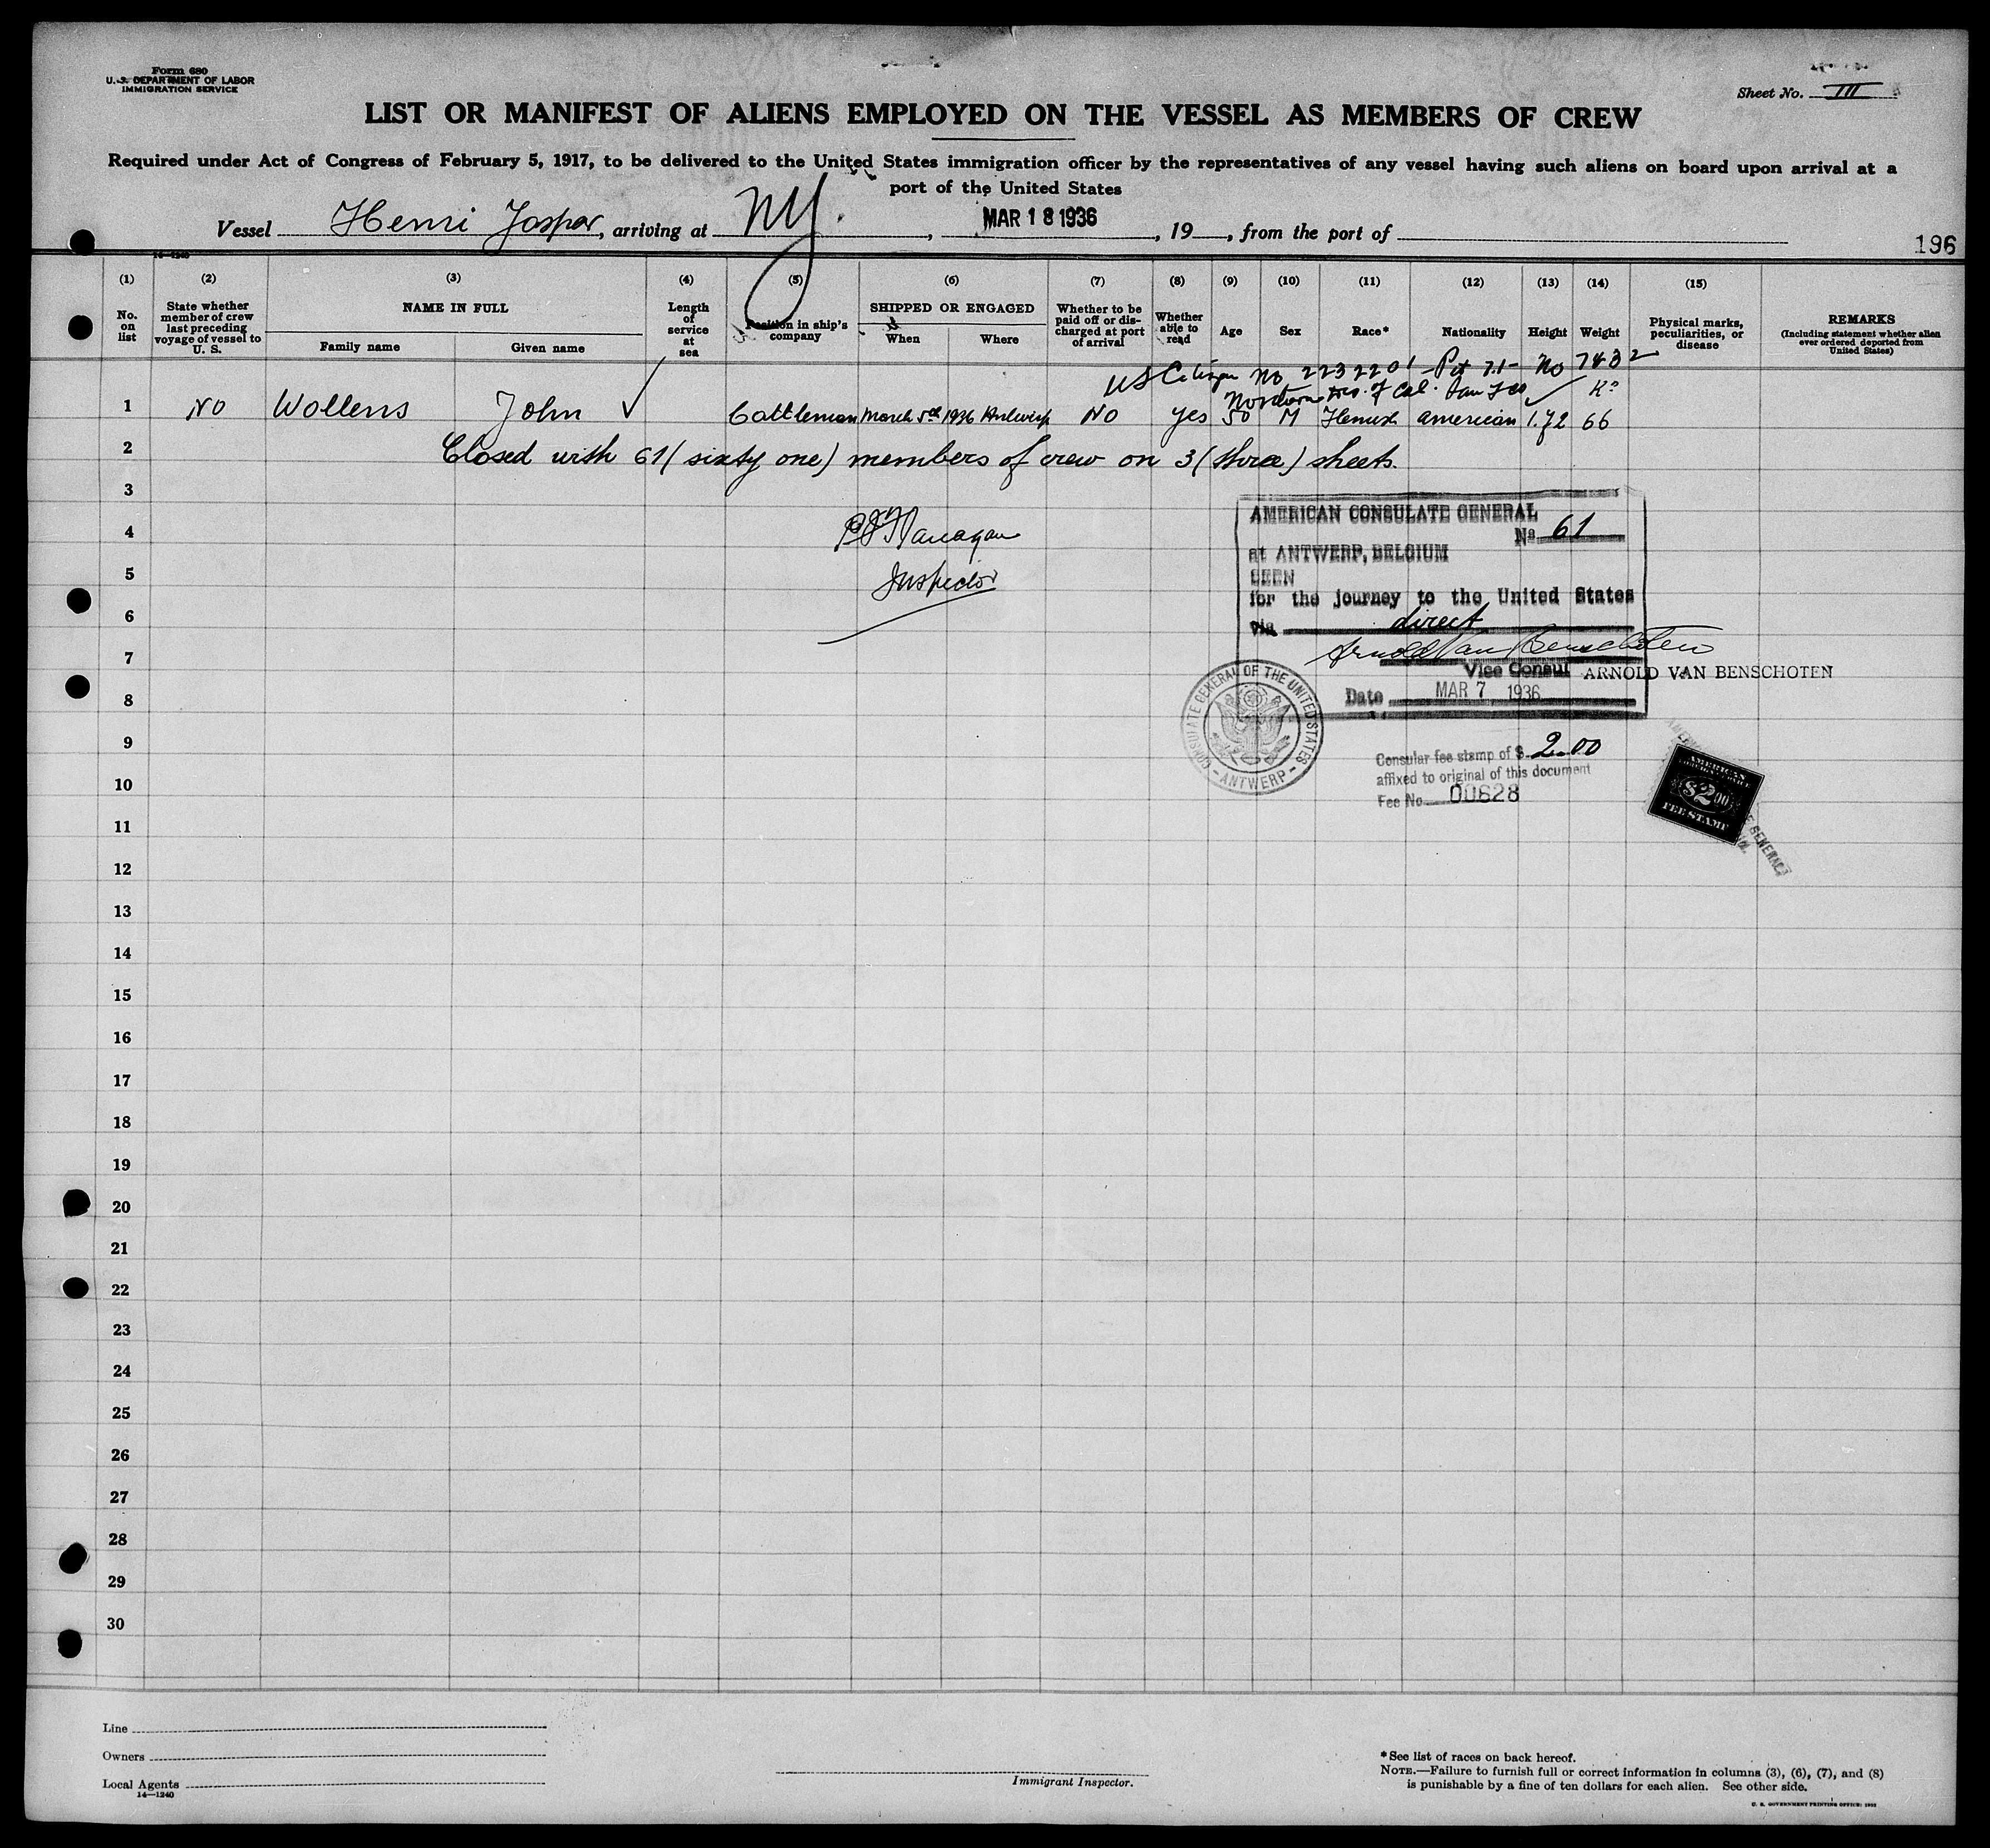 Form 680
U. S. DEPARTMENT OF LABOR
IMMIGRATION SERVICE
Sheet No. III
LIST OR MANIFEST OF ALIENS EMPLOYED ON THE VESSEL AS MEMBERS OF CREW
Required under Act of Congress of February 5, 1917, to be delivered to the United States immigration officer by the representatives of any vessel having such aliens on board upon arrival at a
port of the United States
Vessel Henri Jaspar, arriving at NY., MAR 18 1936, 19, from the port of
196
14—1240
(1) (2) (3) (4) (5) (6) (7) (8) (9) (10) (11) (12) (13) (14) (15)
No. on list
State whether member of crew last preceding voyage of vessel to U. S.
NAME IN FULL
Family name
Given name
Length of service at sea
Position in ship's company
SHIPPED OR ENGAGED
When
Where
Whether to be paid off or discharged at port of arrival
Whether able to read
Age
Sex
Race*
Nationality
Height
Weight
Physical marks, peculiarities, or disease
REMARKS
(Including statement whether alien ever ordered deported from United States)
US Citizen No 2232201 - Pet 71- No 7432
Northern Dis. of Cal. San Fco
1 No Wollens John Cattleman March 5th 1936 Antwerp No Yes 50 M Flemish american 1.72 66
2 Closed with 61 (sixty one) members of crew on 3 (three) sheets.
3
4
5
6
7
8
9
10
11
12
13
14
15
16
17
18
19
20
21
22
23
24
25
26
27
28
29
30
Flanagan
Inspector
AMERICAN CONSULATE GENERAL
No 61
at ANTWERP, BELGIUM
SEEN
for the journey to the United States
via direct
Arnold Van Benschoten
Vice Consul ARNOLD VAN BENSCHOTEN
Date MAR 7 1936
CONSULATE GENERAL OF THE UNITED STATES
- ANTWERP -
Consular fee stamp of $ 2.00
affixed to original of this document
Fee No. 00628
AMERICAN
$2.00
FEE STAMP
Line
Owners
Local Agents
14—1240
Immigrant Inspector.
*See list of races on back hereof.
NOTE.—Failure to furnish full or correct information in columns (3), (6), (7), and (8)
is punishable by a fine of ten dollars for each alien. See other side.